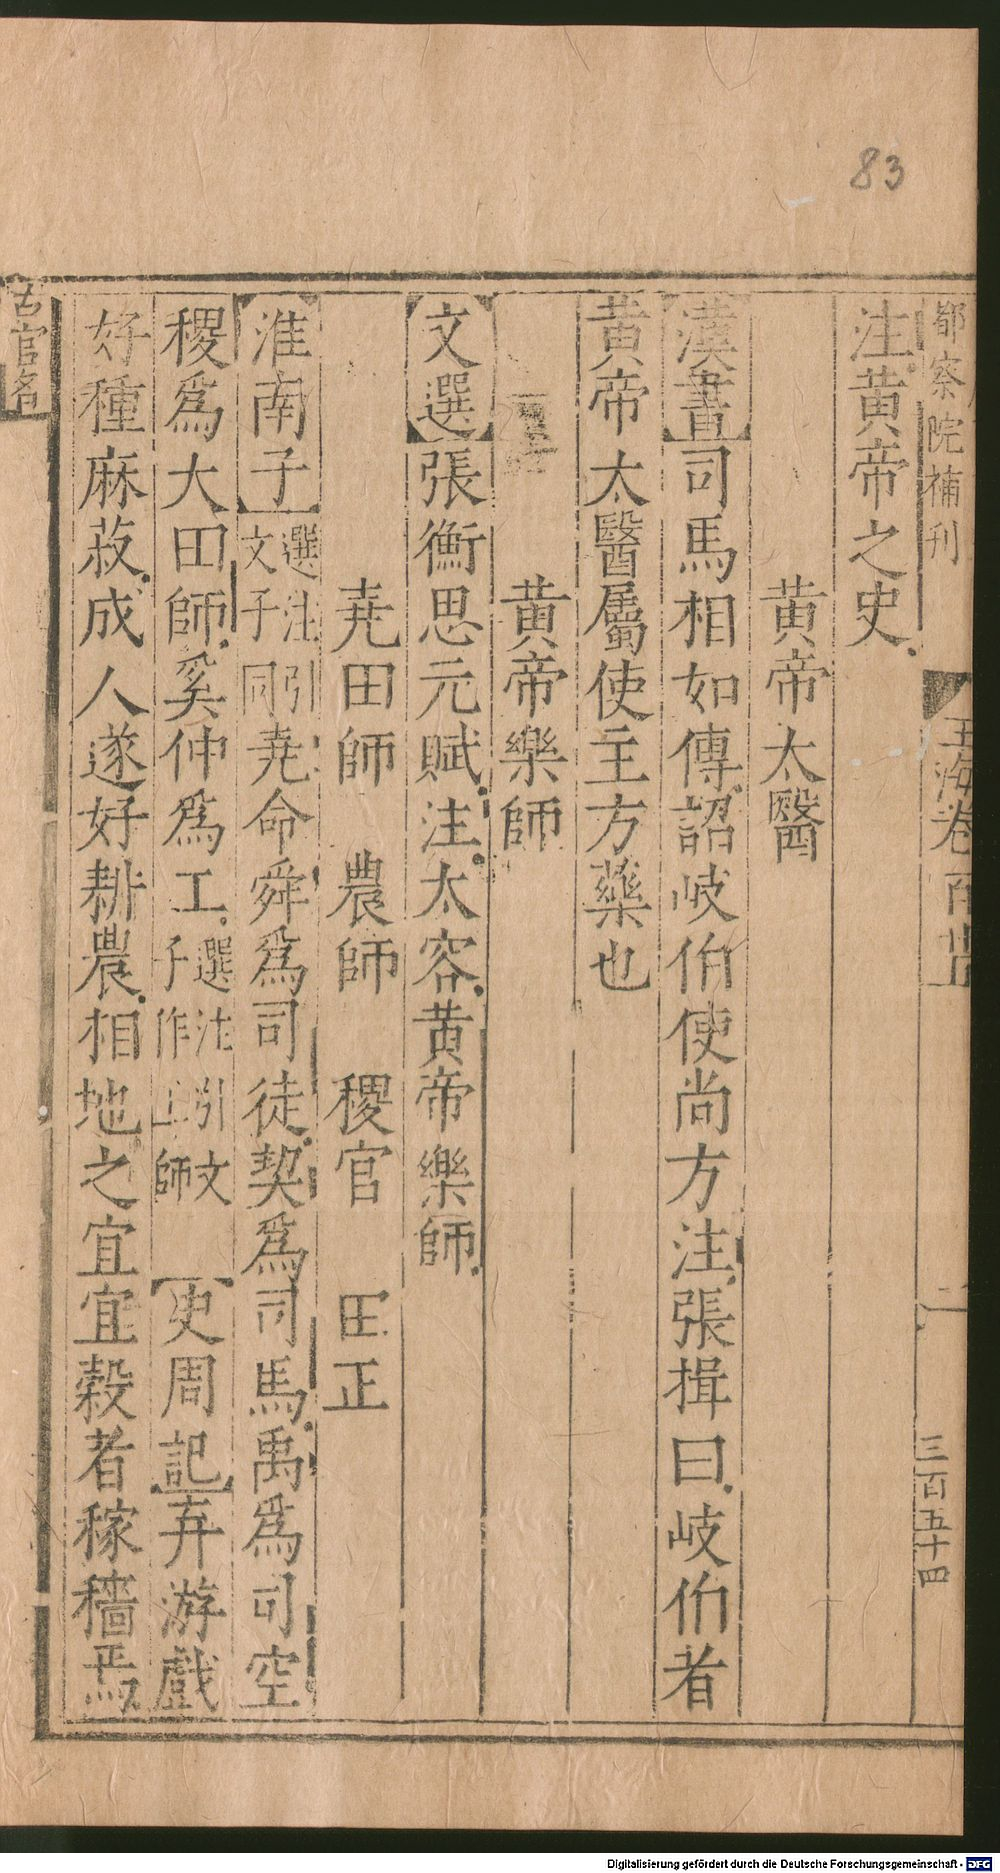 83
都察院補刊
玉海卷百
二
三百五十四
注黄帝之史
黄帝太醫
漢書司馬相如傳詔岐伯使尚方注張揖曰岐伯者
黄帝太醫屬使主方藥也
黄帝樂師
文選張衡思元賦注太容黄帝樂師
堯田師 農師 稷官 田正
淮南子選注引文子同堯命舜爲司徒契爲司馬禹爲司空
稷爲大田師奚仲爲工選注引文子作工師 史周記弃游戲
好種麻菽成人遂好耕農相地之宜宜穀者稼穡焉
古官名
Digitalisierung gefördert durch die Deutsche Forschungsgemeinschaft - DFG